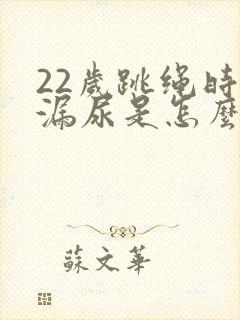 22歲跳绳時
漏尿是怎麼
蘇文華